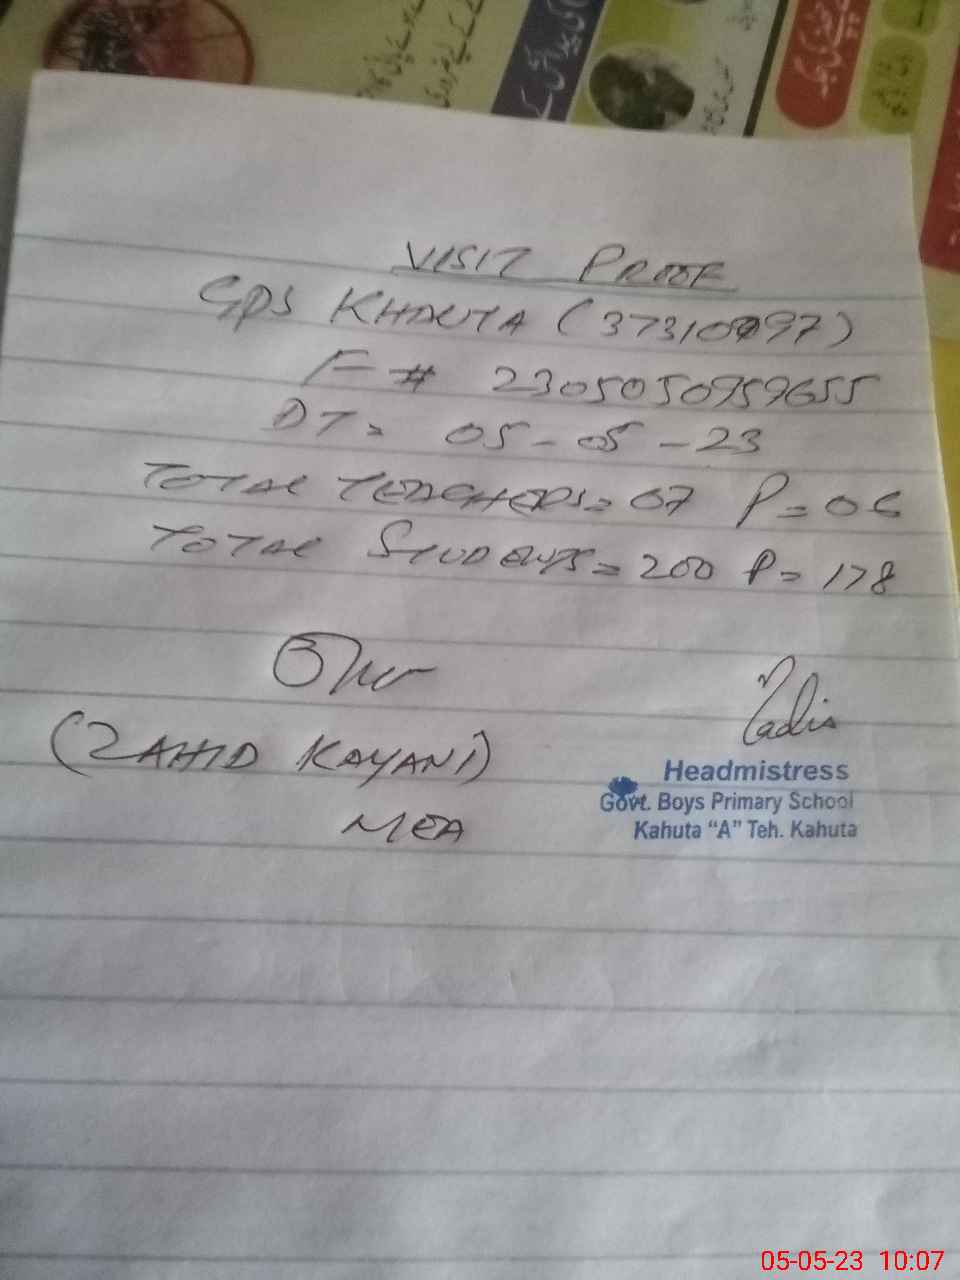 VISIT PROOF
GPS KHAUTA (37310097)
F # 2305050959655
DT = 05-05-23
TOTAL TEACHERS = 07 P = 06
TOTAL STUDENTS = 200 P = 178
(ZAHID KAYANI)
MEA
Headmistress
Govt. Boys Primary School
Kahuta "A" Teh. Kahuta
05-05-23 10:07